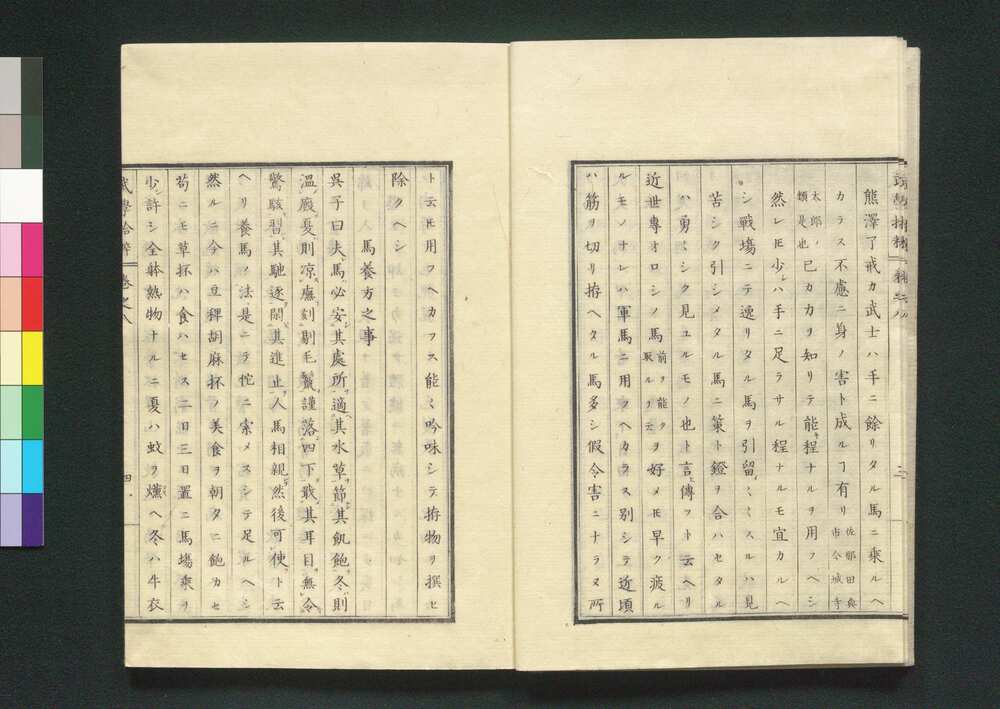 熊澤了戒カ武士ハ手ニ餘リタル馬ニ乘ルヘ
カラス不慮ニ身ノ害ト成ルヿ有リ佐那田與市今城寺
太郎ノ類是也己カ力リ知リテ能程ナルヲ用フヘシ
然レ𪜈少シハ手ニ足ラサル程ナルモ宜カルヘ
シ戰塲ニテ逸リタル馬ヲ引留ミミスルハ見
苦シク引シメタル馬ニ策ト鐙ヲ合ハセタル
ハ勇ミシク見ユルモノ也ト言傳フト云ヘリ
近世專オロシノ馬前ヲ能クヲ好メ𪜈早ク疲ル
ルモノナレハ軍馬ニ用フヘカラス別シテ近頃
ハ筋ヲ切リ拵ヘタル馬多シ假令害ニナラヌ所
ト云𪜈用フヘカラス能く吟味シテ拵物ヲ撰ヒ
除クヘシ
馬養方之事
吳子曰夫馬必安其處所適其水草節其飢飽冬則
溫廐夏則凉廡刻剔毛鬣謹落四下戢其耳目無令
驚駭習其馳逐閑其進止人馬相親然後可使ト云
ヘリ養馬ノ法是ニテ他ニ索メスシテ足ルヘシ
然ルニ今ハ豆稗胡麻抔ノ美食ヲ朝タニ飽カセ
苟ニモ草抔ハ食ハセス二日三日置ニ馬塲乘ヲ
少シ許シ全躰熱物ナルニ夏ハ蚊ヲ燻ヘ冬ハ牛衣
武學拾粹 卷之八 四